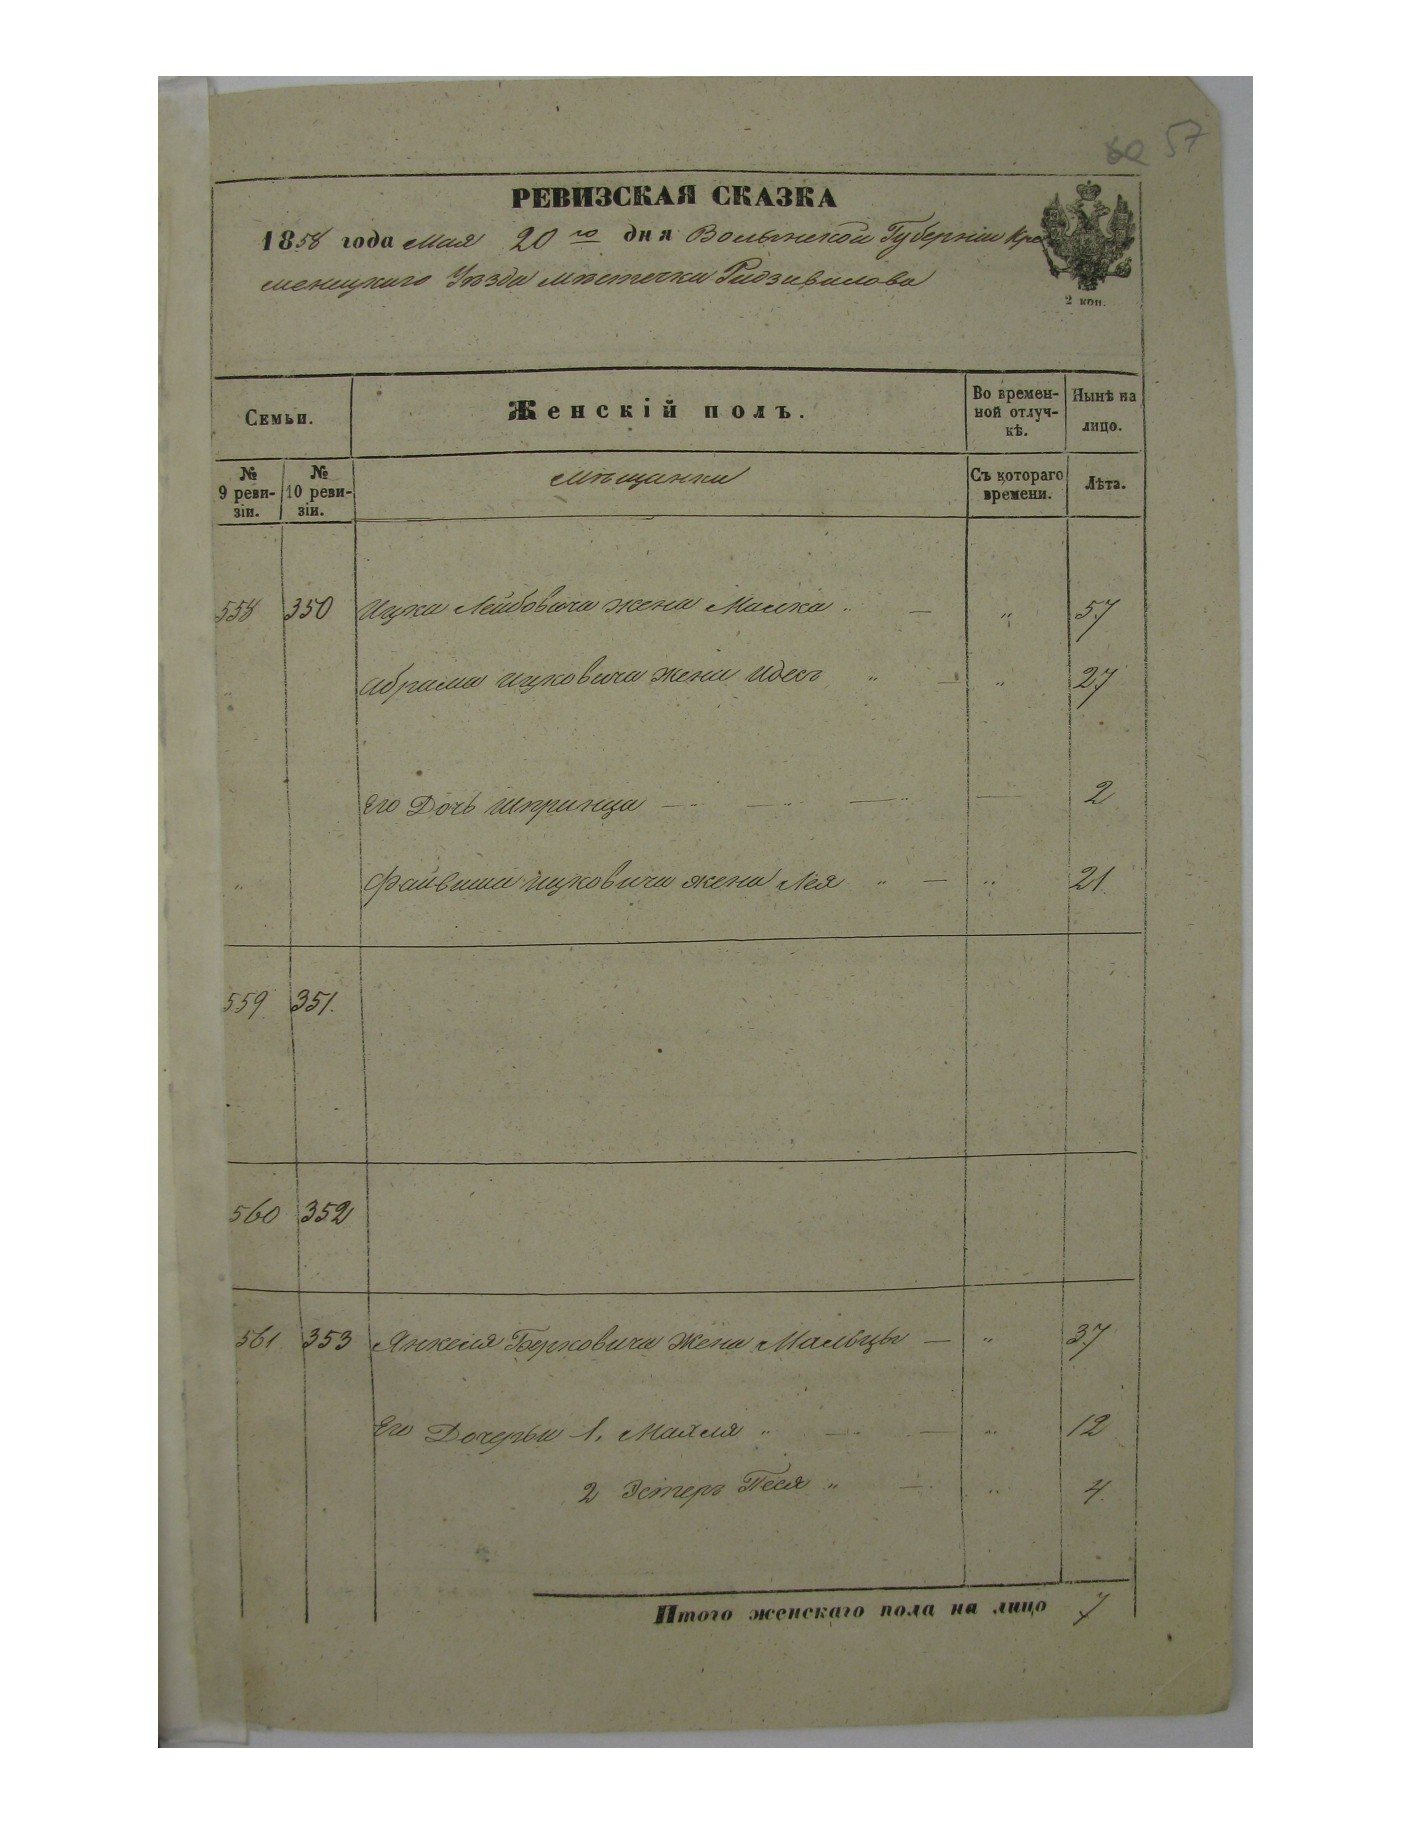 57
РЕВИЗСКАЯ СКАЗКА
1858 года Мая 20го дня Волынской Губерніи Кре
менецкаго Уѣзда мѣстечка Радзивилова
2 коп.
Семьи.
Женскій полъ.
Во времен-
ной отлуч-
кѣ.
Нынѣ на
лицо.
№
9 реви-
зіи.
№
10 реви-
зіи.
Мѣщанки
Съ котораго
времени.
Лѣта.
558 350 Ицка Лейбовича жена Малка „ — „ 57
„ Абрама Ицковича жена Идесъ „ — „ 27
Его Дочь Шпринца — — — — 2
„ Файвиша Ицковича жена Лея „ — „ 21
559 351.
560 352
561 353 Янкеля Берковича жена Мальцы — „ 37
Его Дочерьи 1, Махля „ — — „ 12
2 Эстеръ Песя „ — „ 4.
Итого женскаго пола на лицо 7